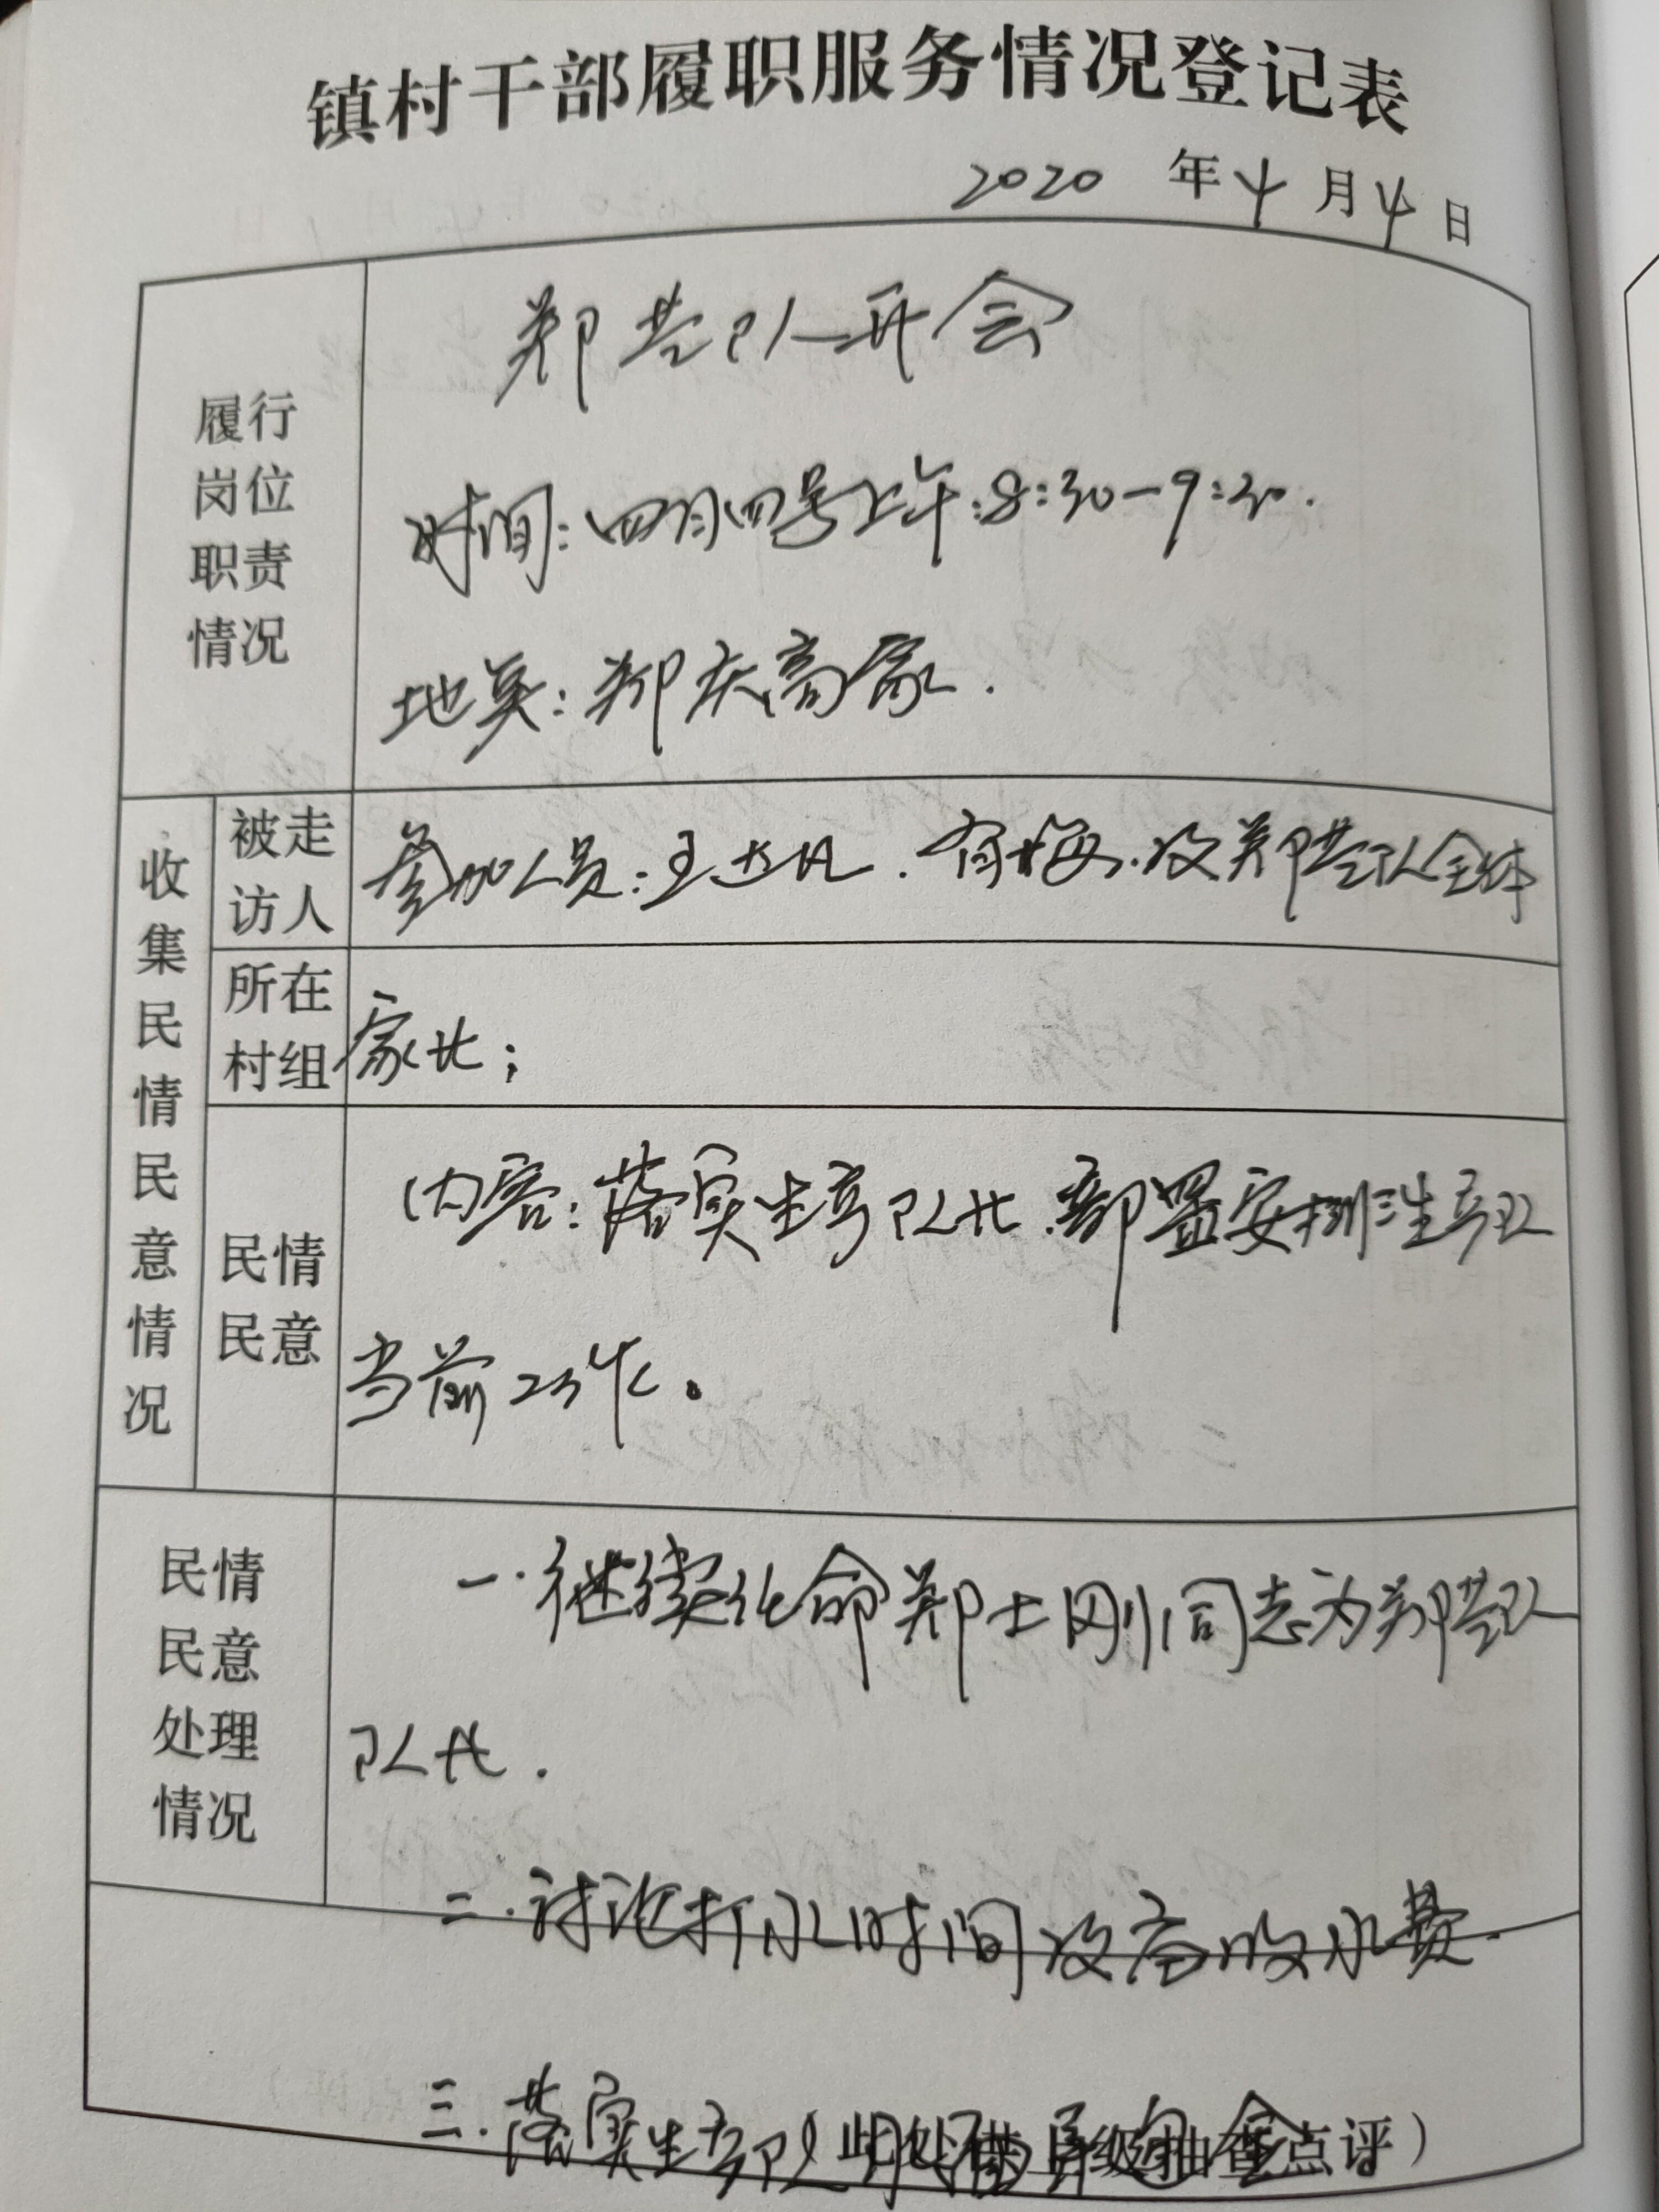 镇村干部履职服务情况登记表
2020 年 4 月 4 日
履行
岗位
职责
情况
郑营队开会
时间:四月四号上午:8:30-9:30.
地美:郑庆高家.
收集民情民意情况
被走
访人
参加人员:王 . 梅.及郑营队全体
所在
村组
家长;
民情
民意
内容:落实生产队长.部置安排生产队
当前工作。
民情
民意
处理
情况
一.继续任命郑士刚同志为郑营队
队长.
二.讨论打水时间及 收水费.
三.落实生产队
此处供上级抽查点评)